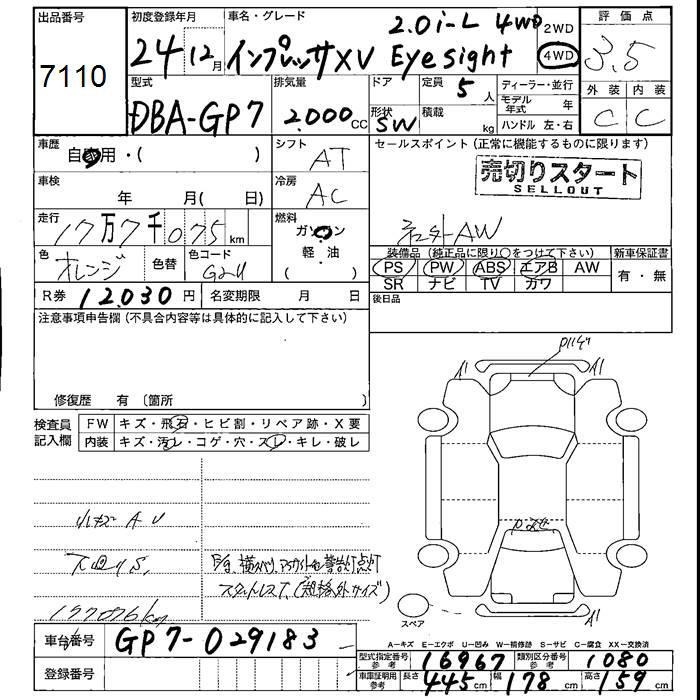 出品番号
7110
初度登録年月 24年12月
車名・グレード 2.0i-L 4WD
インプレッサXV Eyesight
2WD
4WD
評価点
3.5
外装 内装
C C
型式
DBA-GP7
排気量
2.000 CC
ドア
形状
SW
定員 5 人
積載 kg
ディーラー・並行
モデル年式 年
ハンドル 左・右
車歴
自家用・( )
シフト AT
車検 年 月( 日)
冷房 AC
走行
17万7千075 km
燃料
ガソリン
軽・油
( )
色 オレンジ
色替
色コード G24
R券 12.030 円
名変期限 月 日
セールスポイント(正常に機能するものに限ります)
売切りスタート
SELLOUT
AW
装備品(純正品に限り○をつけて下さい)
PS PW ABS エアB AW
SR ナビ TV カワ
新車保証書
有・無
後日品
注意事項申告欄(不具合内容等は具体的に記入して下さい)
修復歴 有 (箇所 )
検査員
記入欄
FW キズ・飛石・ヒビ割・リペア跡・X要
内装 キズ・汚レ・コゲ・穴・スレ・キレ・破レ
小キズ A U
下回りS,
177076kg
スタットレスT,(規格外サイズ)
A1
A1
A1
スペア
A-キズ E-エクボ U-凹み W-補修跡 S-サビ C-腐食 XX-交換済
車台番号 GP7-029183
登録番号
型式指定番号 参考 16967
類別区分番号 参考 1080
車庫証明用 参考 長さ 445cm 幅 178cm 高さ 159cm